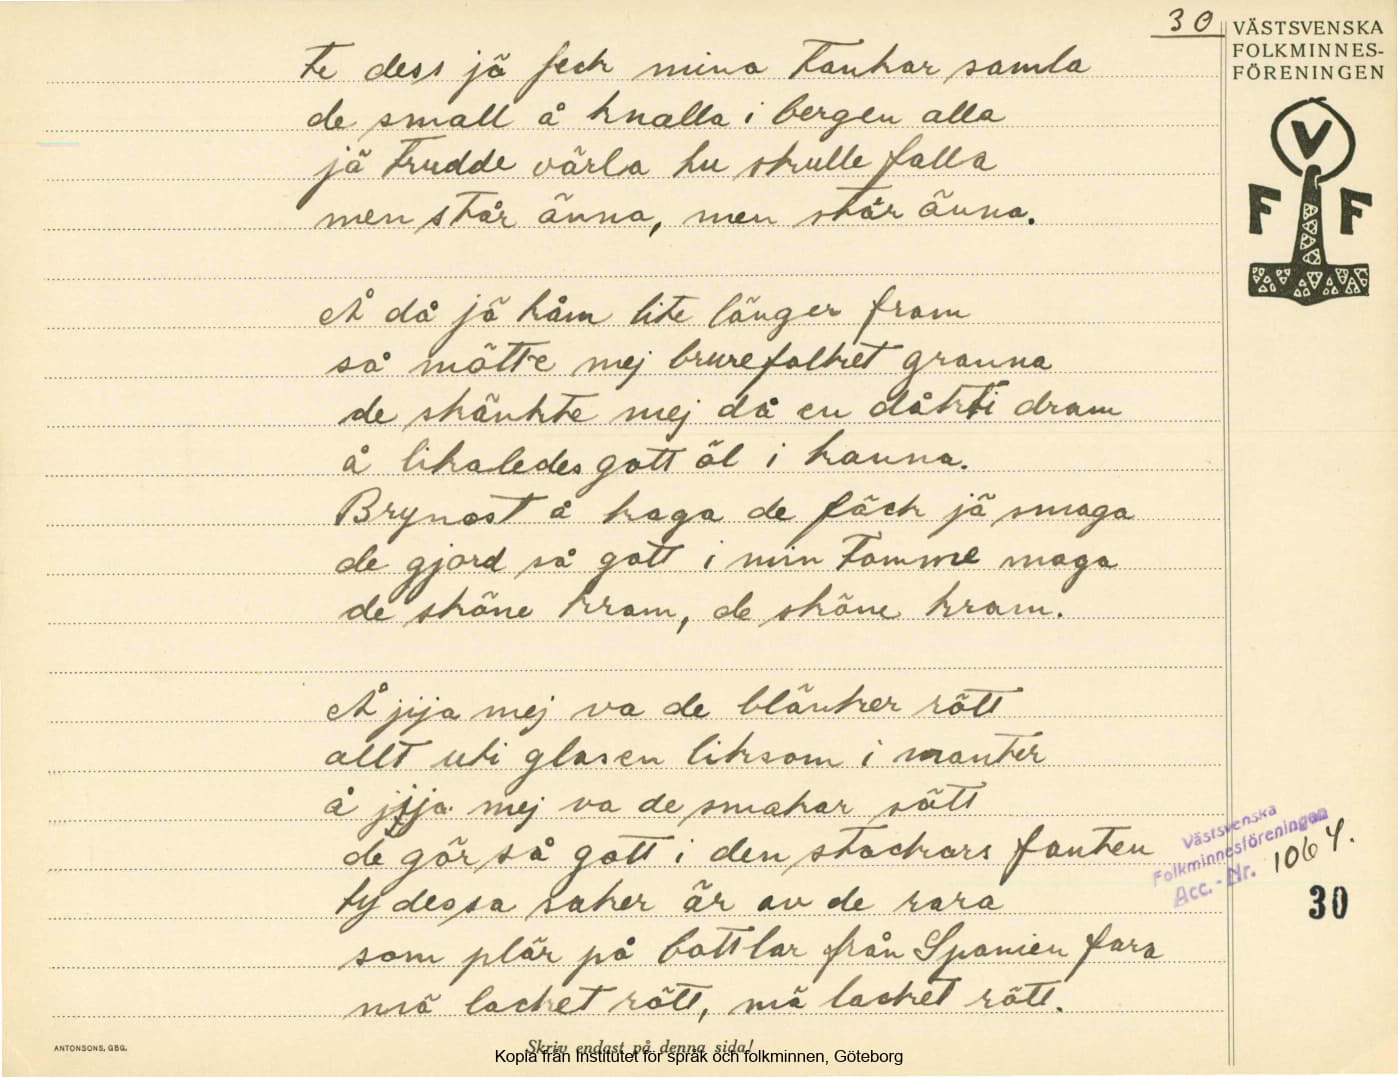 30
VÄSTSVENSKA
FOLKMINNES-
FÖRENINGEN
V
F F
te dess jä feck mina tankar samla
de small å knalla i bergen alla
jä trudde värla hu skulle falla
men står änna, men står änna.
Å då jä kåm lite länger fram
så mötte mej brurefolket granna
de skänkte mej då en dåkti dram
å likaledes gott öl i kanna.
Brynost å kaga de fäck jä smaga
de gjord så gott i min tomme maga
de sköne kram, de sköne kram.
Å jija mej va de blänker rött
allt uti glasen liksom i manker
å jija mej va de smakar sött
de gör så gott i den stackars fanken
ty dessa saker är av de rara
som plär på bottlar från Spanien fara
mä lacket rött, mä lacket rött.
Västsvenska
Folkminnesföreningen
Acc. - Nr. 1064.
30
ANTONSONS, GBG.
Skriv endast på denna sida!
Kopia från Institutet för språk och folkminnen, Göteborg